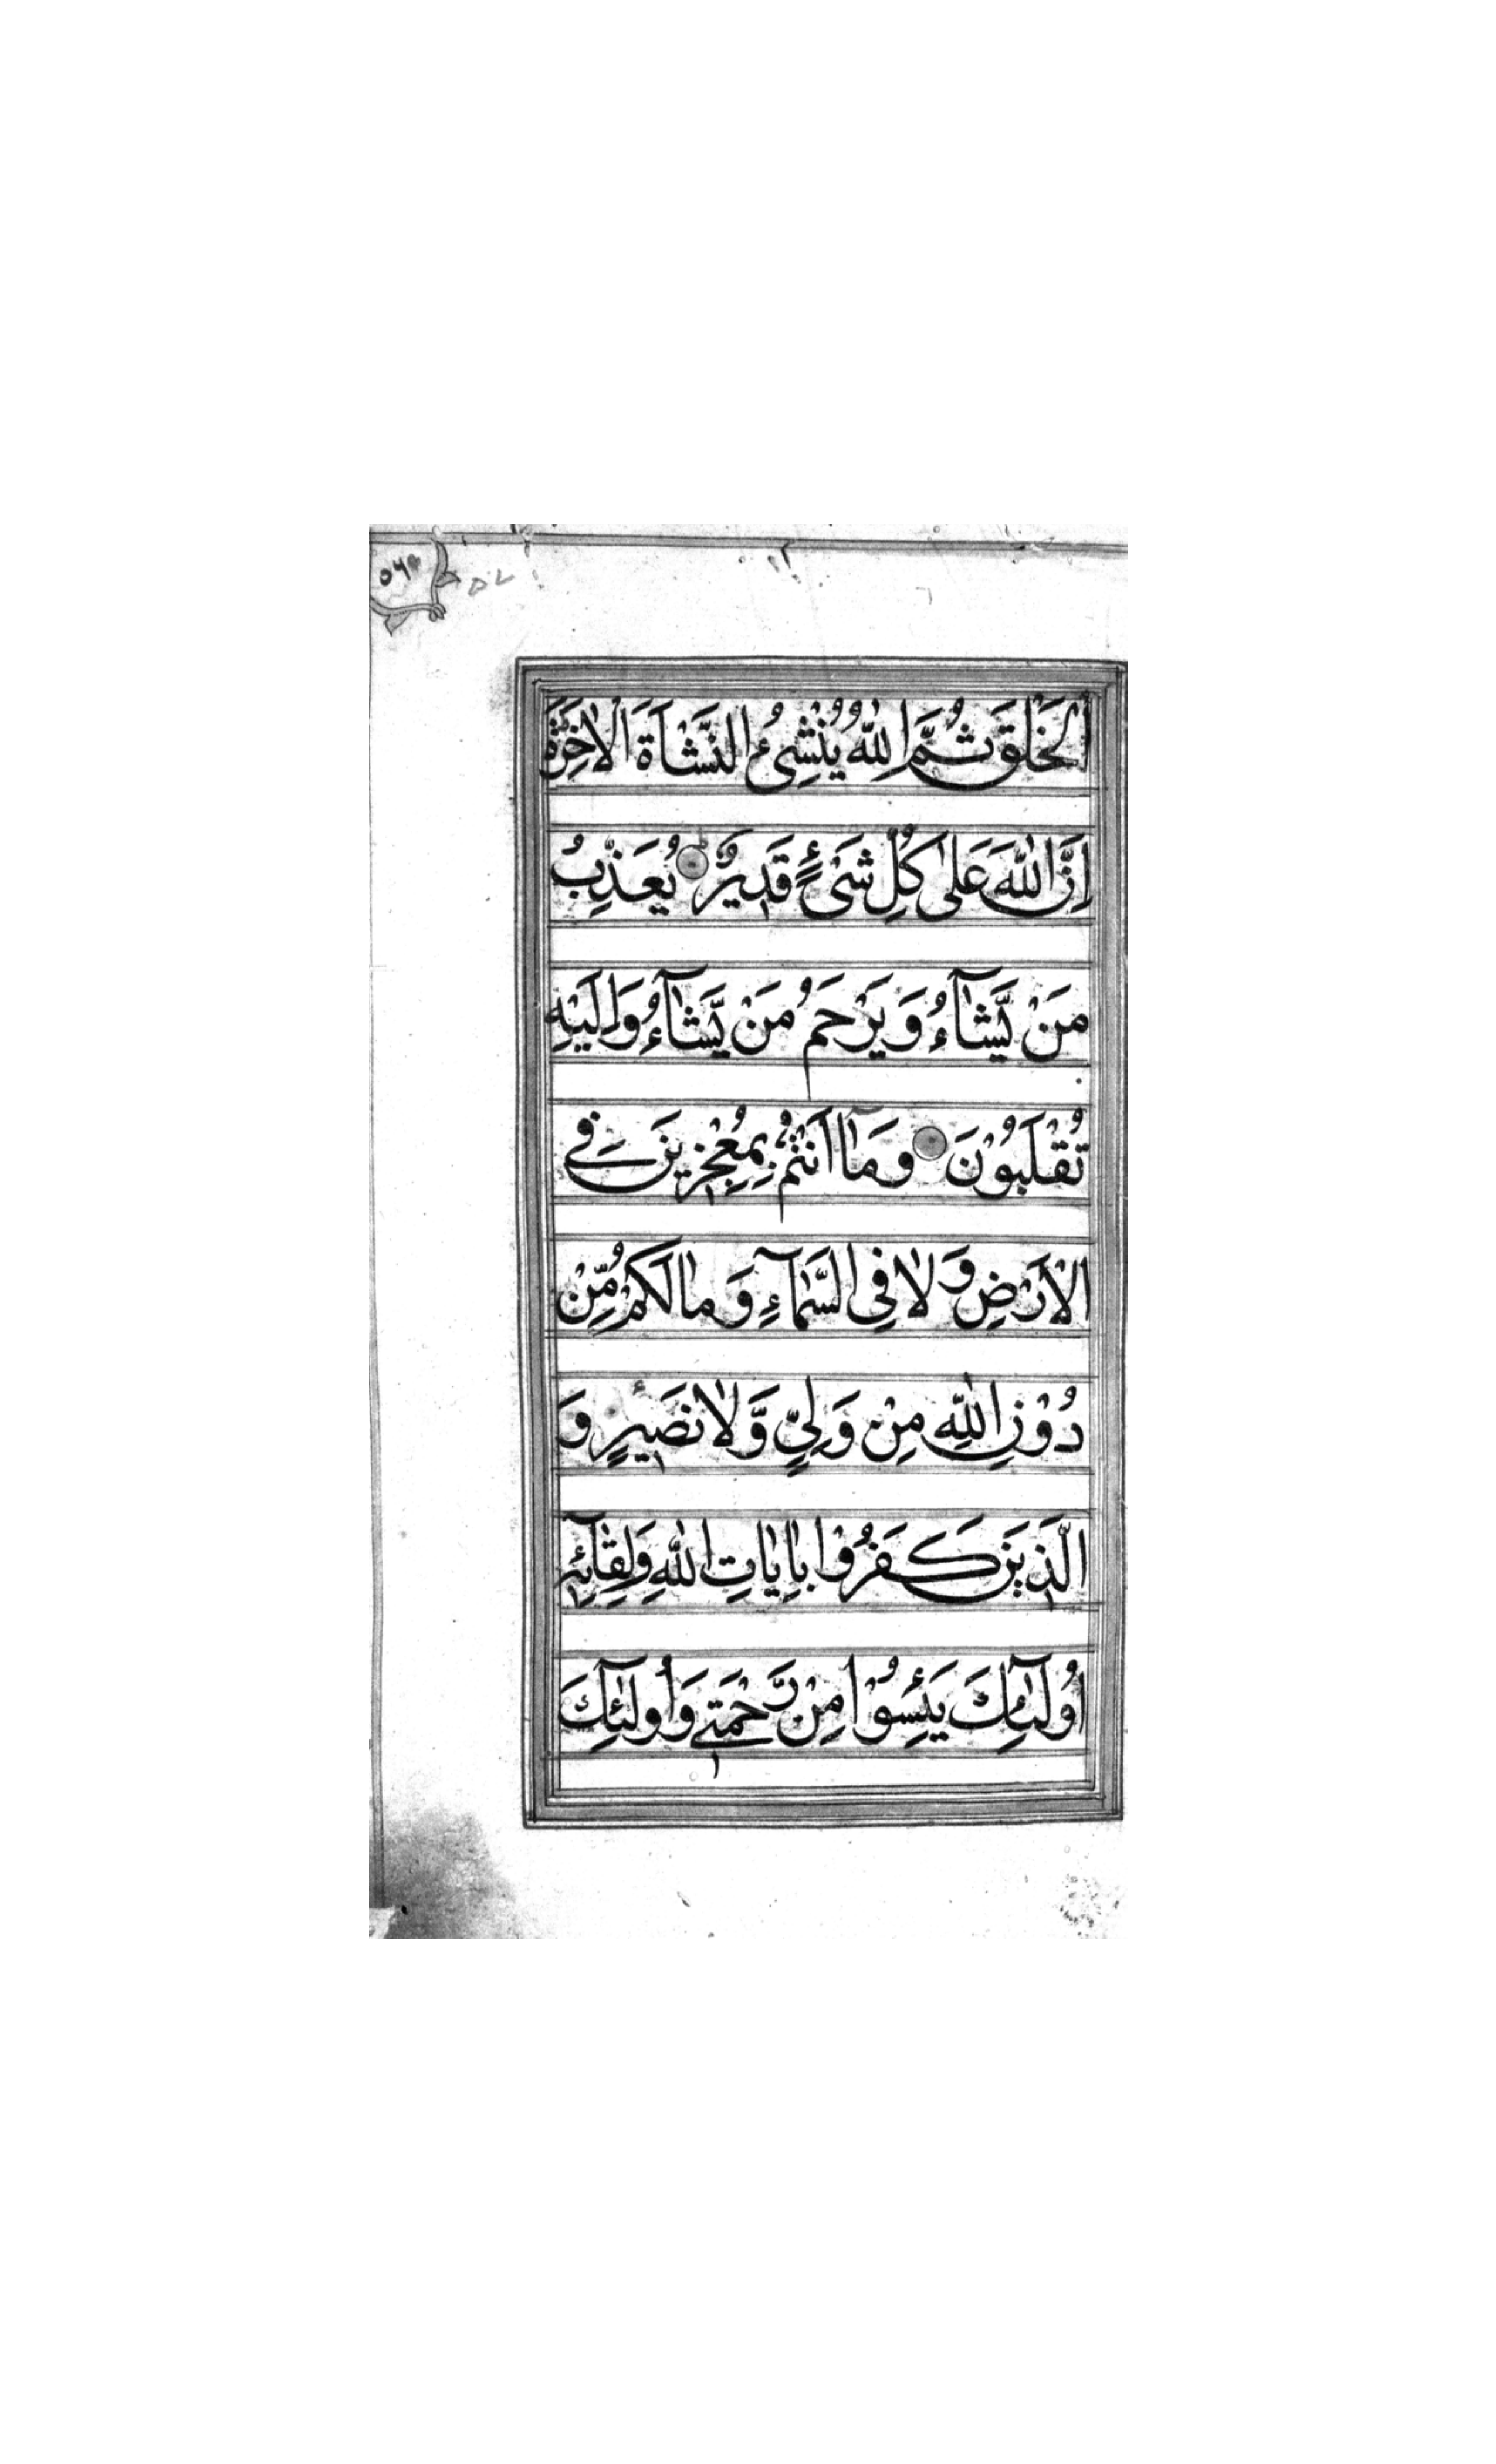 الْخَلْقَ ثُمَّ اللهُ يُنْشِئُ النَّشْأَةَ الْاٰخِرَةَ
اِنَّ اللهَ عَلٰى كُلِّ شَىْءٍ قَدِيْرٌ يُعَذِّبُ
مَنْ يَّشَآءُ وَيَرْحَمُ مَنْ يَّشَآءُ وَاِلَيْهِ
تُقْلَبُوْنَ وَمَآ اَنْتُمْ بِمُعْجِزِيْنَ فِى
الْاَرْضِ وَلَا فِى السَّمَآءِ وَمَا لَكُمْ مِّنْ
دُوْنِ اللهِ مِنْ وَلِىٍّ وَّلَا نَصِيْرٍ وَ
الَّذِيْنَ كَفَرُوْا بِاٰيَاتِ اللهِ وَلِقَآئِهِ
اُولٰٓئِكَ يَئِسُوْا مِنْ رَّحْمَتِىْ وَاُولٰٓئِكَ